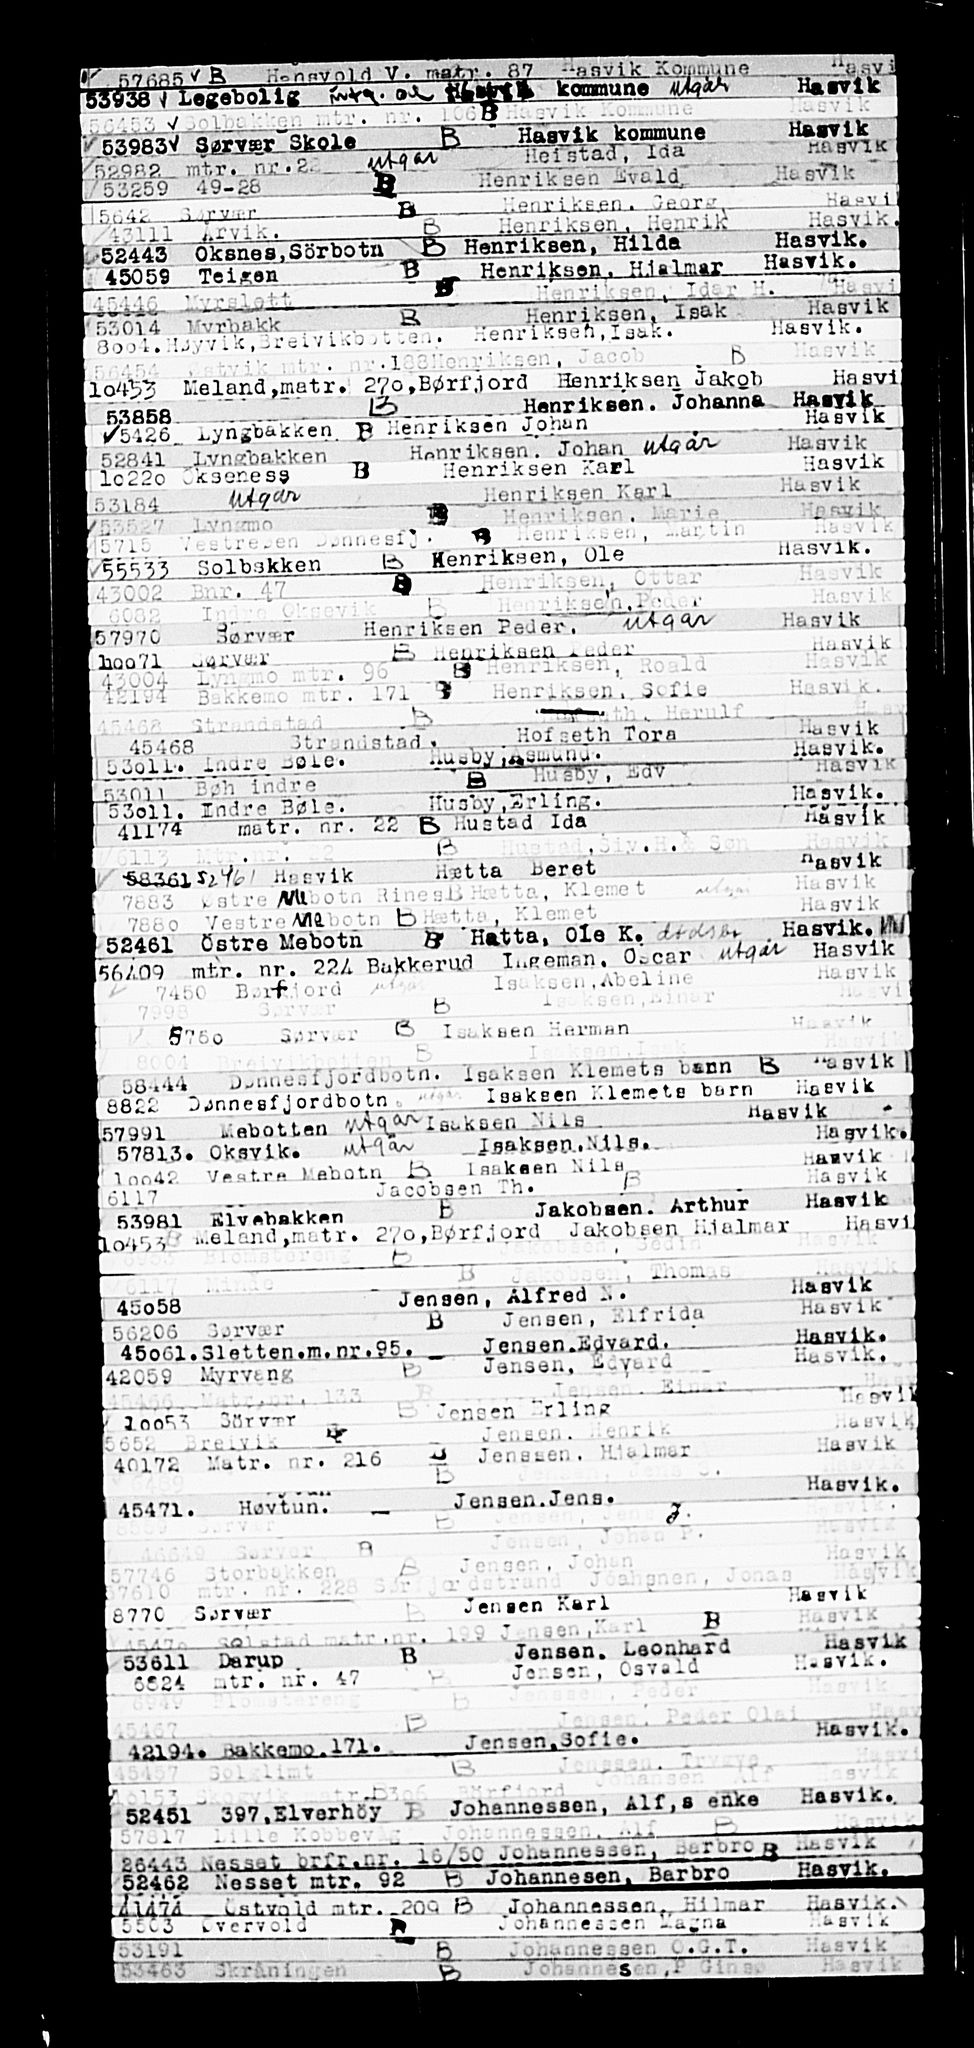 57685 ✓ B Hansvold V. matr. 87 Hasvik Kommune Hasvi
53938 ✓ Legebolig kommune utgår Hasvik
56453 ✓ Solbakken mtr. nr. 106 B Hasvik Kommune Hasvik
✓ 53983 ✓ Sørvær Skole B Hasvik kommune Hasvik
52982 mtr. nr. 22 utgår Heistad, Ida Hasvik
53259 49-28 B Henriksen Evald Hasvik
5642 Sørvær B Henriksen. Georg Hasvi
43111 Arvik. B Henriksen, Henrik Hasvik.
52443 Oksnes,Sörbotn B Henriksen, Hilda Hasvik.
45059 Teigen B Henriksen. Hjalmar Hasvik.
45446 Myrslett B Henriksen, Idar H. Hasvi
53014 Myrbakk B Henriksen, Isak Hasvik
8004. Høyvik,Breivikbotten. Henriksen,Isak. Hasvik.
56454 Østvik mtr. nr.188 Henriksen, Jacob B Hasvik
10453 Meland,matr. 270,Børfjord Henriksen Jakob Hasvi
53858 B Henriksen. Johanna Hasvik
✓ 5426 Lyngbakken B Henriksen Johan Hasvik
52841 Lyngbakken Henriksen. Johan utgår Hasvik
10220 Okseness B Henriksen Karl Hasvik
53184 utgår Henriksen Karl Hasvik
✓ 53527 Lyngmo B Henriksen. Marie Hasvik
5715 Vestreben Dønnesfj. B Henriksen, Martin Hasvik
✓ 55533 Solbakken B Henriksen, Ole Hasvik.
43002 Bnr. 47 B Henriksen, Ottar Hasvik
6082 Indre Oksevik B Henriksen.Peder Hasvik
57970 Sørvær Henriksen Peder. utgår Hasvik
10071 Sørvær B Henriksen Peder Hasvik
43004 Lyngmo mtr. 96 B Henriksen, Roald Hasvik
42194 Bakkemo mtr. 171 B Henriksen, Sofie Hasvik.
45468 Strandstad B Herulf Hasv
45468 Strandstad. Hofseth Tora Hasvik
53011. Indre Bøle. Husby,Asmund. Hasvik.
53011 Bøh indre B Husby, Edv Hasvik
53011. Indre Bøle. Husby,Erling. Hasvik.
41174 matr. nr. 22 B Hustad Ida Hasvik
6113 Mtr.nr. 22 B Hustad,Siv.H.& Søn Hasvik
58361 52461 Hasvik Hætta Beret Hasvik
7883 Østre Mebotn Rines B Hætta, Klemet utgår Hasvik
7880 Vestre Mebotn B Hætta, Klemet Hasvik
52461 Östre Mebotn B Hætta, Ole K. dødsbo Hasvik.
56409 mtr. nr. 224 Bakkerud Ingeman. Oscar utgår Hasvik
7450 Børfjord utgår Isaksen,Abeline Hasvik
7998 Sørvær B Isaksen,Einar Hasvi
5760 Sørvær B Isaksen Herman Hasvik
8004 Breivikbotten B Isaksen.Isak Hasvik
58444 Dønnesfjordbotn. Isaksen Klemets barn B Hasvik
8822 Dønnesfjordbotn. utgår Isaksen Klemets barn Hasvik
57991 Mebotten utgår Isaksen Nils Hasvik
57813. Oksvik. utgår Isaksen.Nils. Hasvik.
10042 Vestre Mebotn B Isaksen Nils Hasvik
6117 Jacobsen Th. B Hasvik
53981 Elvebakken B Jakobsen. Arthur Hasvik
10453 B Meland,matr. 270,Børfjord Jakobsen Hjalmar Hasvi
6953 Blomstereng B Jakobsen, Sedin Hasvik
6117 Minde B Jakobsen, Thomas Hasvik
45058 Jensen, Alfred N. Hasvik
56206 Sørvær B Jensen, Elfrida Hasvik
45061.Sletten.m.nr.95. Jensen.Edvard. Hasvik.
42059 Myrvang B Jensen, Edvard Hasvik.
45466 Matr.nr. 133 B Jensen. Einar Hasv
10053 Sörvær B Jensen Erling Hasvik
5652 Breivik Jensen. Henrik Hasvik
40172 Matr. nr. 216 B Jenssen. Hjalmar Hasvik
B
45471. Høvtun. Jensen.Jens. Hasvik.
8569 Sørvær B Jensen, Jens J. Hasvik.
46649 Sørvær B Jensen, Johan P. Hasvik
57746 Storbakken B Jensen, Johan Hasvik
57610 mtr. nr. 228 Sørfjordstrand Joahsnen, Jonas Hasvik
8770 Sørvær B Jensen Karl Hasvik
45470 Solstad matr.nr. 199 Jensen,Karl B Hasvik
53611 Darup B Jensen. Leonhard Hasvik
6824 mtr. nr. 47 B Jensen, Osvald Hasvik.
6949 Blomstereng B Jenssen, Peder Hasvik
45467 B Jensen. Peder Olai Hasv
42194. Bakkemo.171. Jensen.Sofie. Hasvik.
45457 Solglimt B Jenssen. Trygve Hasvi
10153 Skogvik matr. B 306 Børfjord Johansen Alf Hasvik
52451 397,Elverhöy B Johannessen, Alf,s enke Hasvik.
57817 Lille Kobbevåg Johannessen. Alf B Hasvik
26443 Nesset brfr.nr. 16/50 Johannessen, Barbro B Hasvik
52462 Nesset mtr. 92 B Johannesen, Barbro Hasvik.
41474 Östvold mtr. 209 B Johannessen, Hilmar Hasvik.
5503 Øvervold B Johannessen Magna Hasvik
53191 B Johannessen O.G.T. Hasvik
53463 Skråningen B Johannesen,P Ginsø Hasvik